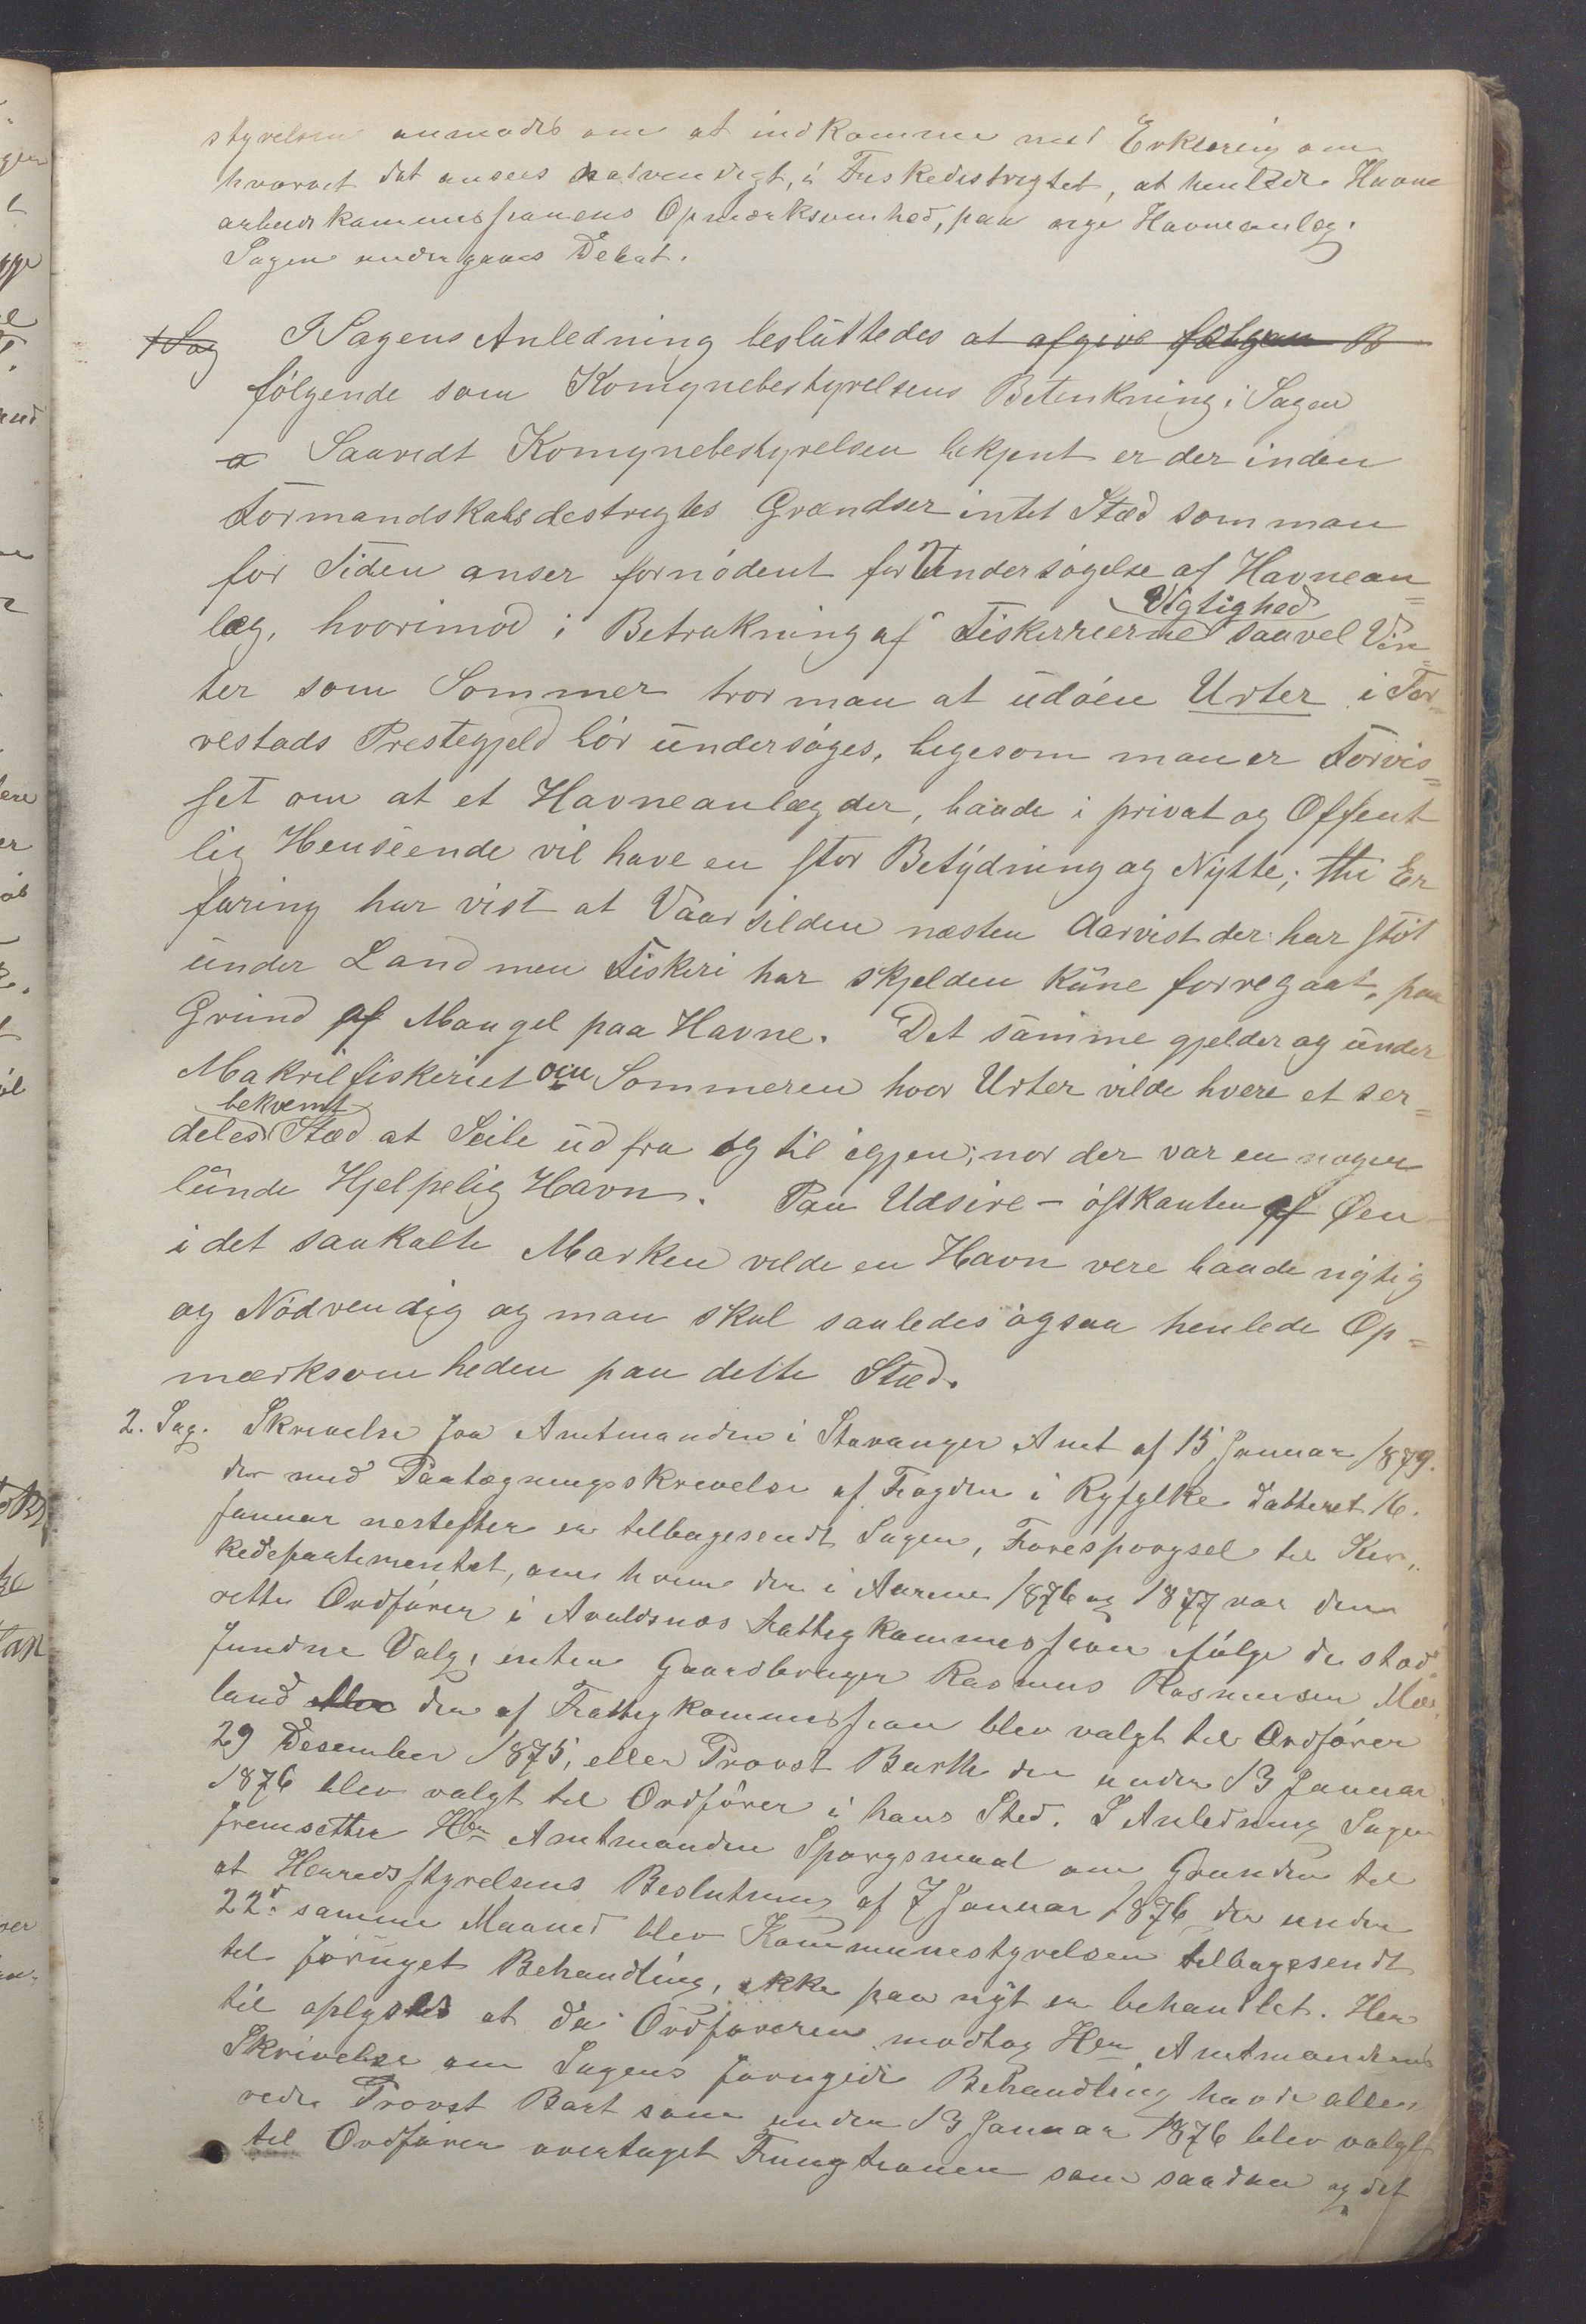 styrelsen anmodes om at indkomme med Erklæring om
hvorvet det ansees nødvendigt, i Fiskedistrigtet, at henlede Havne
arbeidskommissionens Opmærksomhed, paa nye Havneanlæg.
Sagen undergaaes Debat.
1 Sag I Sagens Anledning besluttedes at afgive følgen B
følgende som Komynebestyrelsens Betenkning i Sagen
a Saavidt Komynebestyrelsen bekjent er der inden
Formandskabsdestrigtes Grændser intet Stæd som man
for Tiden anser fornødent for Undersøgelse af Havnean=
læg, hvorimod i Betrakning af Fiskerrierne Vigtighed saavel Vin=
ter som Sommer tror man at udøen Urter i Tor=
vestads Prestegjeld bør undersøges, ligesom man er Forvis=
set om at et Havneanlæg der, baade i privat og Offent
lig Henseende vil have en stor Betydning og Nytte; thi Er
faring har vist at Vaarsilden næsten Aarvist der har støt
under Land men Fiskeri har skjelden kune forregaat, paa
Grund af Mangel paa Havne. Det samme gjelder og under
Makrilfiskeriet om Sommeren hvor Urter vilde hvere et ser=
deles bekvemt Stæd at Seile ud fra og til igjen; nor der var en nogen
lunde Hjelpelig Havn. Paa Udsire - østkanten af Øen
i det saakalte Marken vilde en Havn vere baade vigtig
og Nødvendig og man skal saaledes ogsaa henlede Op=
mærksomheden paa dette Stæd.
2. Sag. Skrivelse fra Amtmanden i Stavanger Amt af 15 Januar 1879.
der med Paategningsskrivelse af Fogden i Ryfylke datteret 16.
Januar nestefter er tilbagesendt Sagen, Forespørgsel til Kir„
kedepartementet, om hvem der i Aarene 1876 og 1877 var den
rette Ordfører i Avaldsnæs Fattigkommission ifølge de sted
fundne Valg, enten Gaardbruger Rasmus Rasmusen Mæ
land eller der af Fattigkommission blev valgt til Ordfører
29 Desember 1875, eller Provst Barth der under 13 Januar
1876 blev valgt til Ordfører i hans Sted. I Anledning Sagen
fremsetter Hr Amtmanden Spørgsmaal om Grunden til
at Herredsstyrelsens Beslutning af 7 Januar 1876 der under
22d. samme Maaned blev Kommunestyrelsen tilbagesendt
til fornyet Behandling, ikke paa nyt er behandlet. Her
til oplystes at da Ordføreren modtog Hr Amtmandens
Skrivelse om Sagens fornyede Behandling havde alle„
rede Provst Bart som under 13 Januar 1876 blev valgt
til Ordfører overtaget Fungtionen som saadan og det